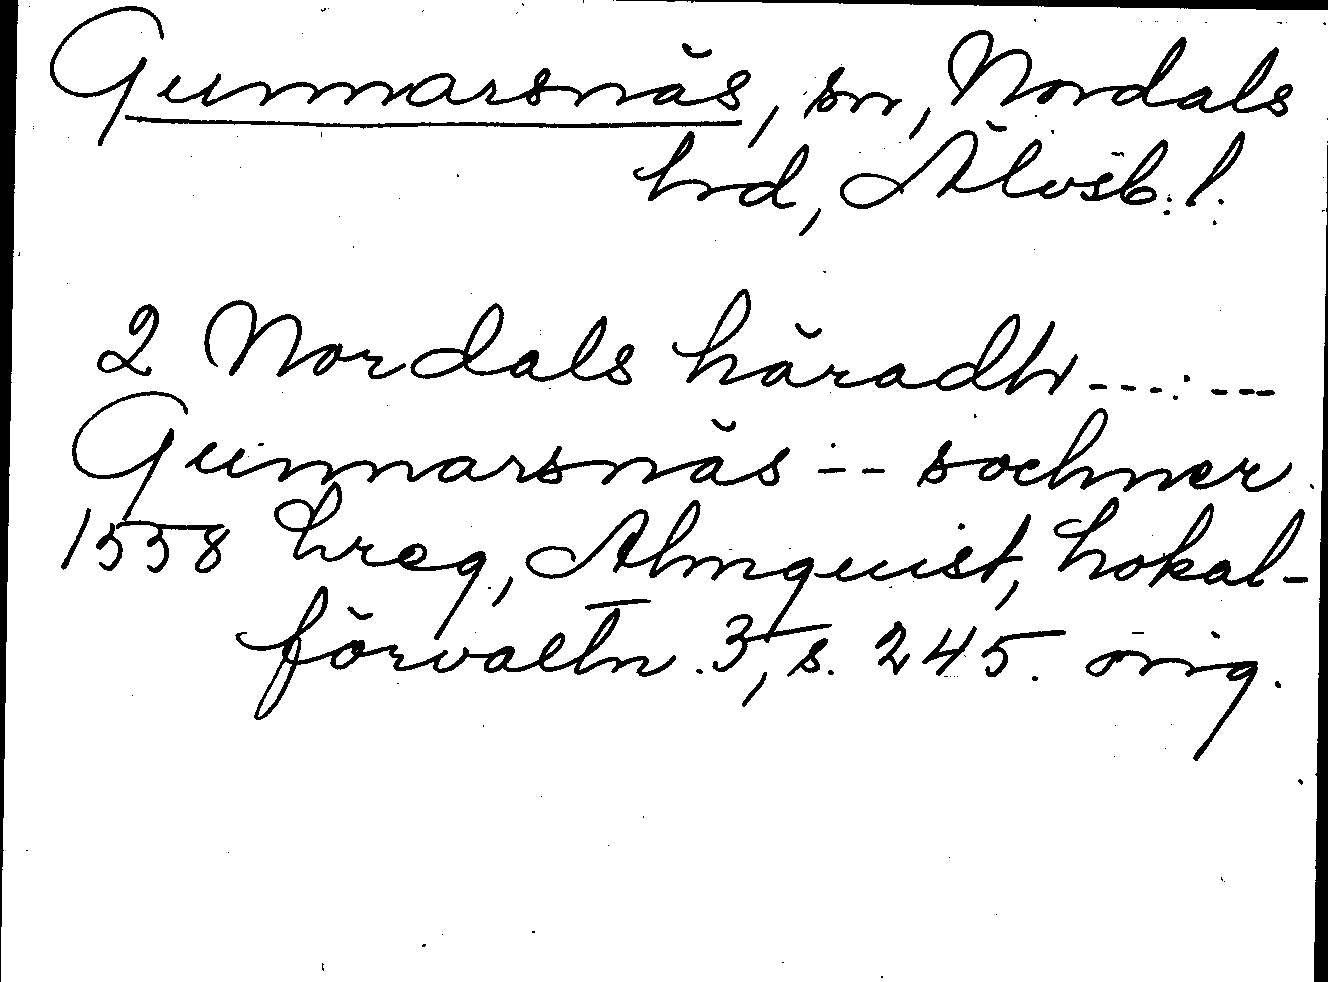 Gunnarsnäs, sn, Nordals
hrd, Älvsb. l.
2 Nordals häradh ---.---
Gunnarsnäs -- sochner
1558 hreg, Almquist, Lokal-
förvaltn. 3, s. 245. orig.